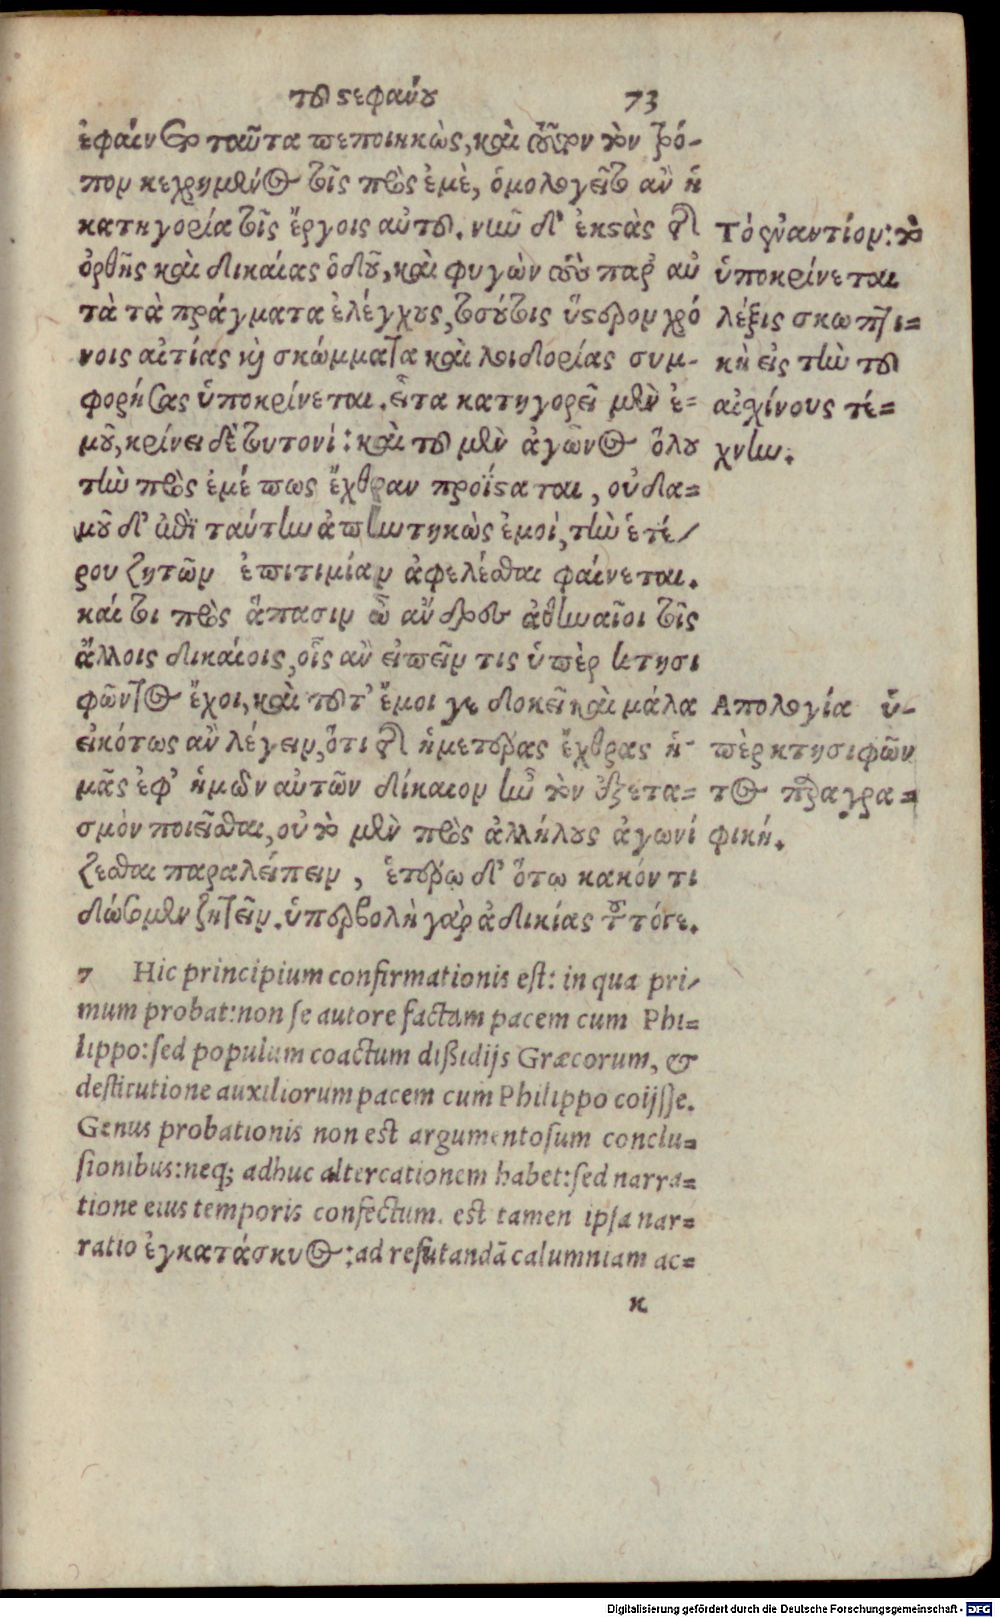 τοῦ στεφάνου 73
ἐφαίνετο ταῦτα πεποιηκὼς, καὶ τοῦτον τὸν τρό-
πον κεχρημένος τοῖς πρὸς ἐμὲ, ὁμολογεῖτο ἂν ἡ
κατηγορία τοῖς ἔργοις αὐτοῦ. νῦν δ' ἐκστὰς τῆς
ὀρθῆς καὶ δικαίας ὁδοῦ, καὶ φυγὼν τοὺς παρ' αὐ
τὰ τὰ πράγματα ἐλέγχους, τοσούτοις ὕστερον χρό
νοις αἰτίας καὶ σκώμματα καὶ λοιδορίας συμ-
φορήσας ὑποκρίνεται. εἶτα κατηγορεῖ μὲν ἐ-
μοῦ, κρίνει δὲ τουτονί: καὶ τοῦ μὲν ἀγῶνος ὅλου
τὴν πρὸς ἐμέ πως ἔχθραν προΐσταται, οὐδα=
μοῦ δ' ἐπὶ ταύτην ἀπηντηκὼς ἐμοί, τὴν ἑτέ/
ρου ζητῶν ἐπιτιμίαν ἀφελέσθαι φαίνεται.
καίτοι πρὸς ἅπασιν ὦ ἄνδρες ἀθηναῖοι τοῖς
ἄλλοις δικαίοις, οἷς ἂν εἰπεῖν τις ὑπὲρ κτησι
φῶντος ἔχοι, καὶ τοῦτ' ἔμοι γε δοκεῖ καὶ μάλα
εἰκότως ἂν λέγειν, ὅτι τῆς ἡμετέρας ἔχθρας ἡ-
μᾶς ἐφ' ἡμῶν αὐτῶν δίκαιον ἦν τὸν ἐξετα=
σμὸν ποιεῖσθαι, οὐ τὸ μὲν πρὸς ἀλλήλους ἀγωνί
ζεσθαι παραλείπειν, ἑτέρῳ δ' ὅτῳ κακόν τι
δώσομεν ζητεῖν. ὑπερβολὴ γὰρ ἀδικίας τοῦτό γε.
Τὸ ἐναντίον: τὸ
ὑποκρίνεται
λέξις σκωπτι=
κὴ εἰς τὴν τοῦ
αἰσχίνους τέ=
χνην.
Απολογία ὑ-
πὲρ κτησιφῶν
τος παραγρα=
φική.
7 Hic principium confirmationis est: in qua pri/
mum probat: non se autore factam pacem cum Phi=
lippo: sed populum coactum dißidijs Græcorum, &
destitutione auxiliorum pacem cum Philippo coijsse.
Genus probationis non est argumentosum conclu=
sionibus: neq; adhuc altercationem habet: sed narra=
tione eius temporis confectum. est tamen ipsa nar=
ratio ἐγκατάσκυος: ad refutandā calumniam ac=
κ
Digitalisierung gefördert durch die Deutsche Forschungsgemeinschaft - DFG